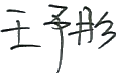 王予彤